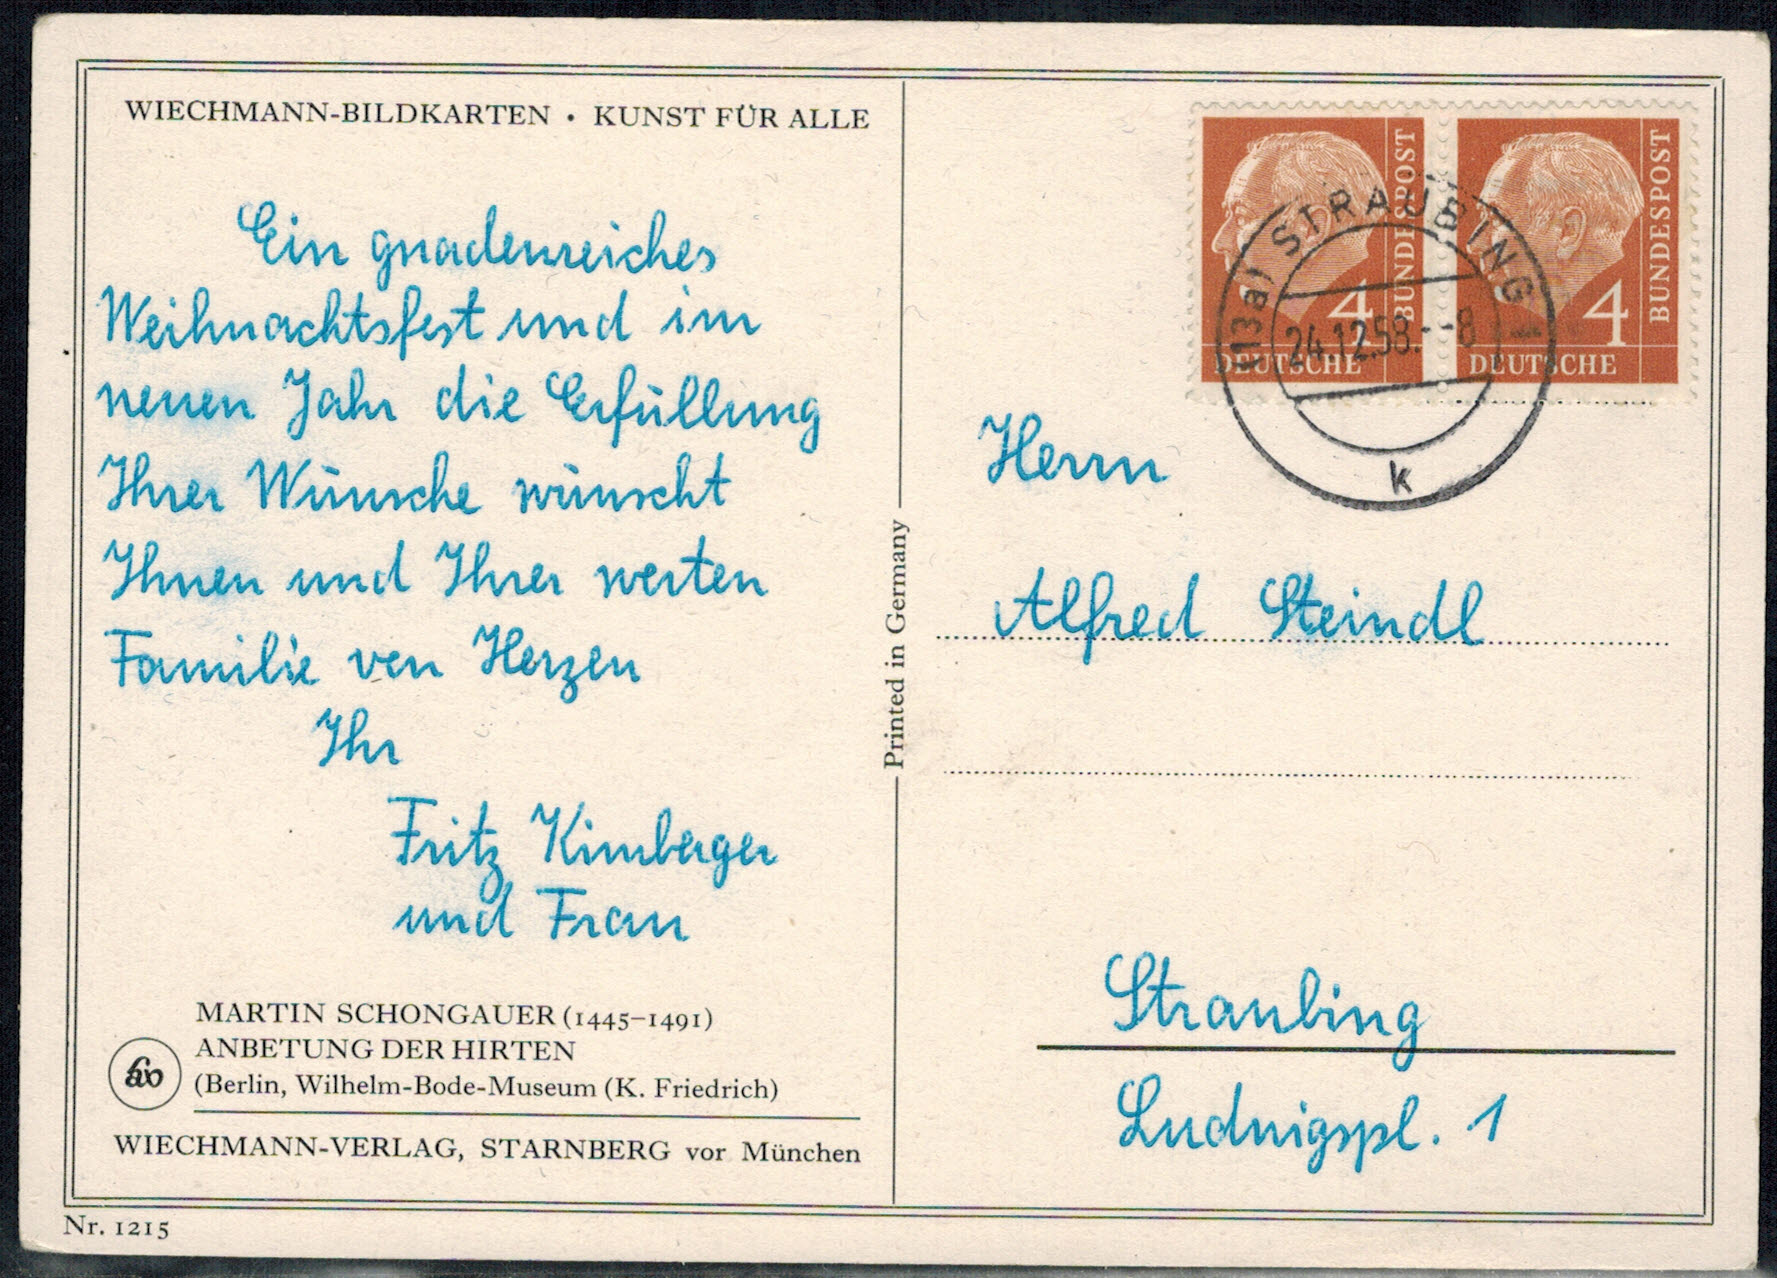 WIECHMANN-BILDKARTEN • KUNST FÜR ALLE
Ein gnadenreiches
Weihnachtsfest und im
neuen Jahr die Erfüllung
Ihrer Wünsche wünscht
Ihnen und Ihrer werten
Familie von Herzen
Ihr
Fritz Kimberger
und Frau
MARTIN SCHONGAUER (1445–1491)
ANBETUNG DER HIRTEN
(Berlin, Wilhelm-Bode-Museum (K. Friedrich)
WIECHMANN-VERLAG, STARNBERG vor München
Nr. 1215
Printed in Germany
4
DEUTSCHE
BUNDESPOST
4
DEUTSCHE
BUNDESPOST
(13a) STRAUBING 1
24.12.58.--8
k
Herrn
Alfred Steindl
Straubing
Ludwigspl. 1